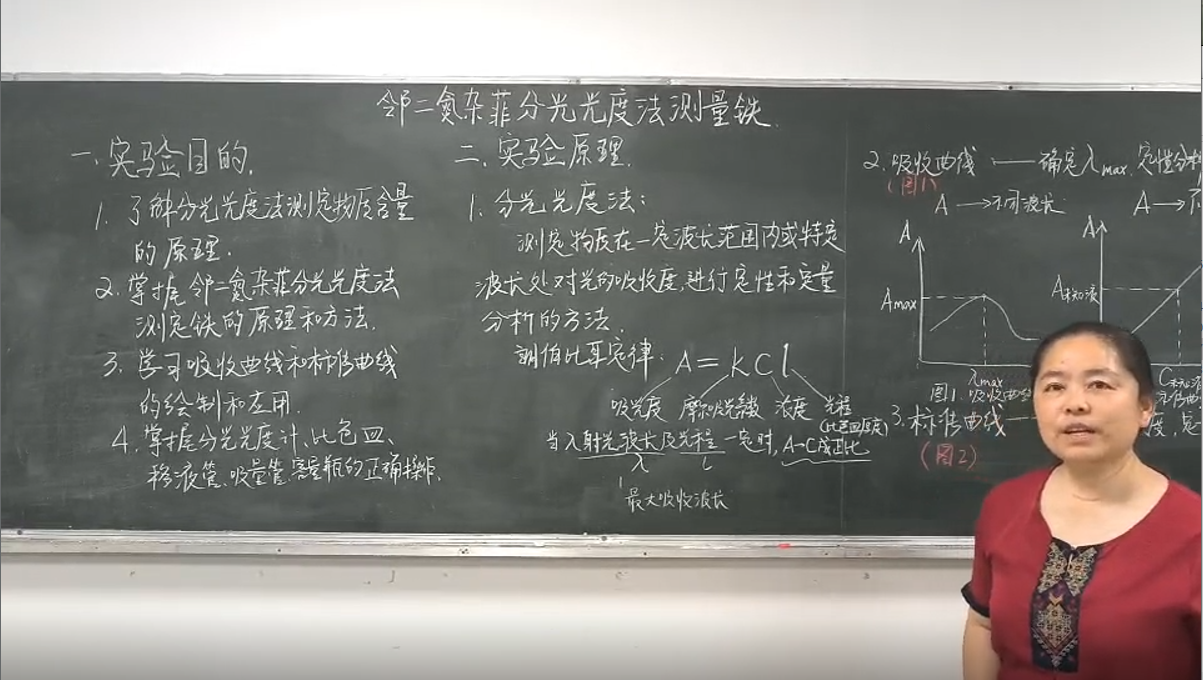 邻二氮杂菲分光光度法测量铁.
一.实验目的.
1. 了解分光光度法测定物质含量
的原理.
2. 掌握邻二氮杂菲分光光度法
测定铁的原理和方法.
3. 学习吸收曲线和标准曲线
的绘制和应用.
4. 掌握分光光度计、比色皿、
移液管、吸量管、容量瓶的正确操作.
二.实验原理.
1. 分光光度法:
测定物质在一定波长范围内或特定
波长处对光的吸收度,进行定性和定量
分析的方法.
朗伯比耳定律: A=kCl
吸光度 摩尔吸光系数 浓度 光程
(比色皿厚度)
当入射光波长及光程一定时, A-C成正比
λ l
最大吸收波长
2. 吸收曲线 — 确定λmax, 定性分析
(图1)
A→不同波长 A→不
A A
Amax A未知液
λmax C未知液
图1. 吸收曲线
3. 标准曲线 — 度, 定
(图2)